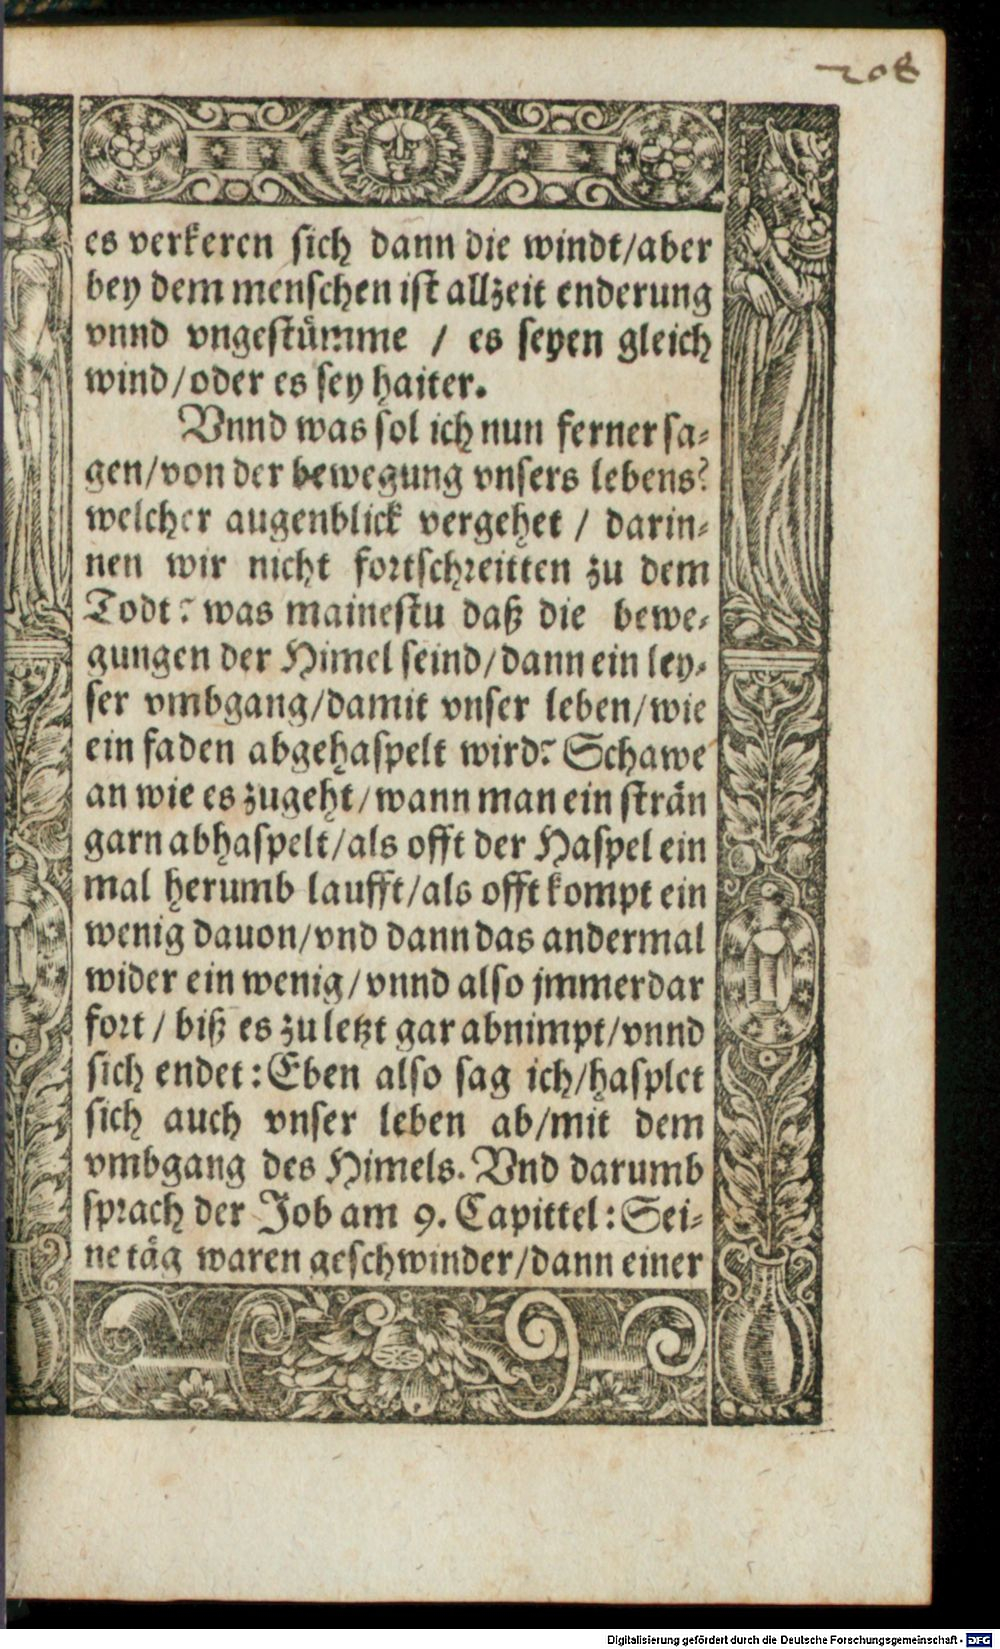 208
es verkeren sich dann die windt/aber
bey dem menschen ist allzeit enderung
vnnd vngestümme / es seyen gleich
wind/oder es sey haiter.
Vnnd was sol ich nun ferner sa-
gen/von der bewegung vnsers lebens?
welcher augenblick vergehet / darin-
nen wir nicht fortschreitten zu dem
Todt? was mainestu daß die bewe-
gungen der Himel seind/dann ein ley-
ser vmbgang/damit vnser leben/wie
ein faden abgehaspelt wird? Schawe
an wie es zugeht/wann man ein strän
garn abhaspelt/als offt der Haspel ein
mal herumb laufft/als offt kompt ein
wenig dauon/vnd dann das andermal
wider ein wenig/vnnd also jmmerdar
fort / biß es zu letzt gar abnimpt/vnnd
sich endet: Eben also sag ich/hasplet
sich auch vnser leben ab/mit dem
vmbgang des Himels. Vnd darumb
sprach der Job am 9. Capittel: Sei-
ne täg waren geschwinder/dann einer
Digitalisierung gefördert durch die Deutsche Forschungsgemeinschaft - DFG